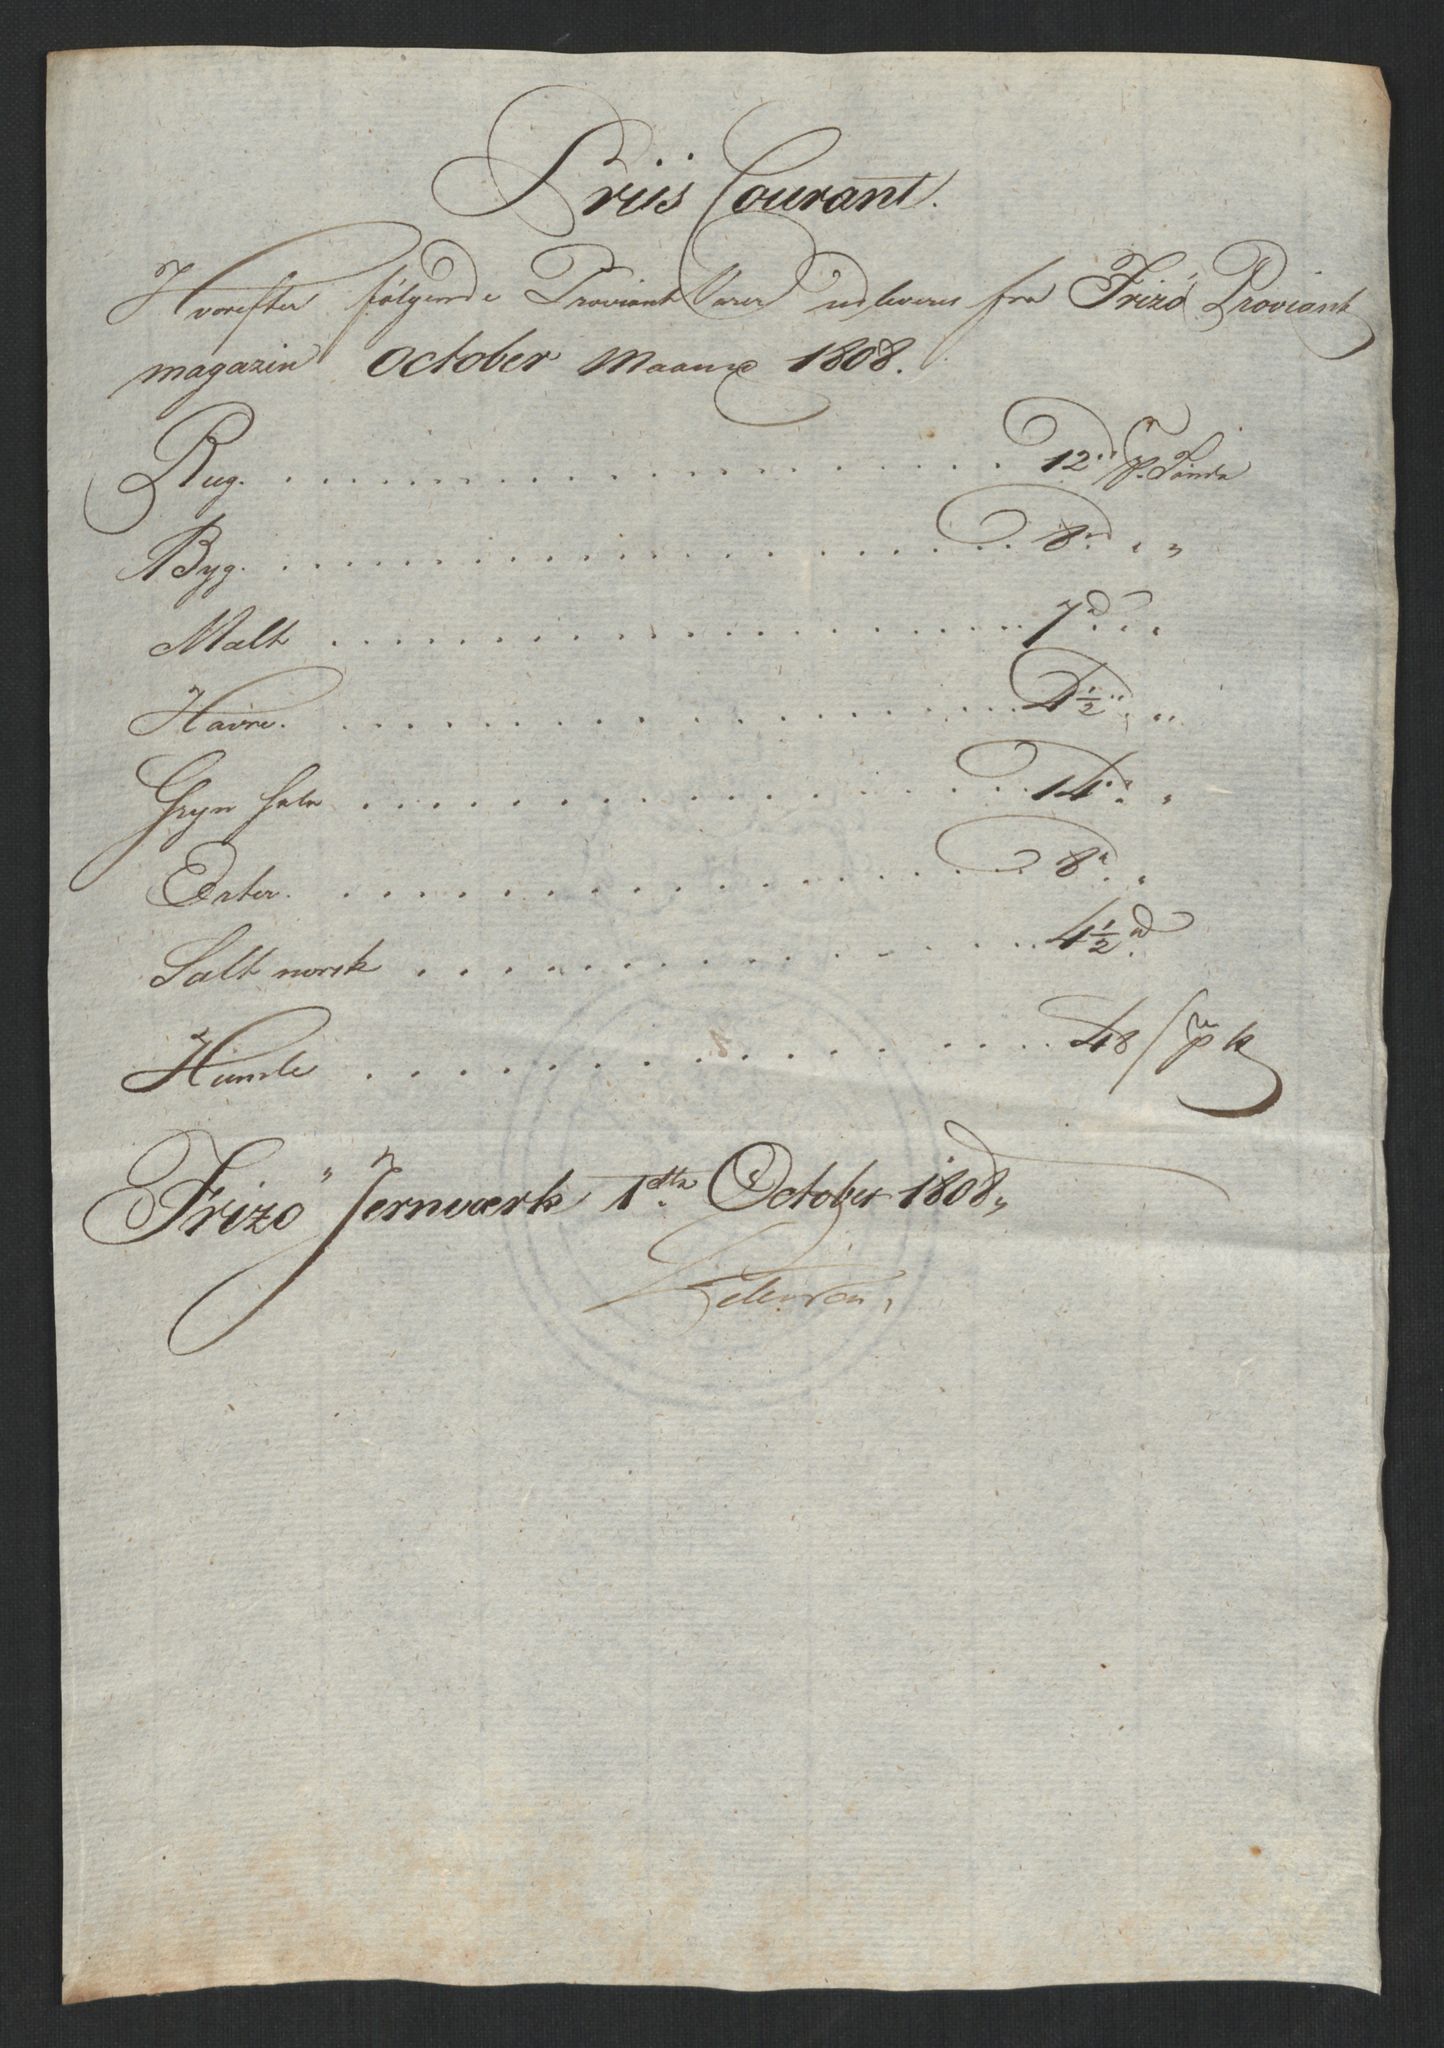 Priis Courant.
Hvorefter følgende Proviant Varer udleveres fra Frizö Proviant
magazin October Maaned 1808.
Rug. . . . . . . . . . . . . . . . 12 rd p. Tönde
Byg. . . . . . . . . . . . . . . . 8 rd „ „
Malt . . . . . . . . . . . . . . . . 7 rd „ „
Havre. . . . . . . . . . . . . . . . 4½ „ „
Gryn hele . . . . . . . . . . . . . . . . 14 „ „
Erter. . . . . . . . . . . . . . . . 8 „ „
Salt norsk . . . . . . . . . . . . . . . . 4½ rd
Humle . . . . . . . . . . . . . . . . 48 / p
Frizö Jernværk 1ste October 1808,